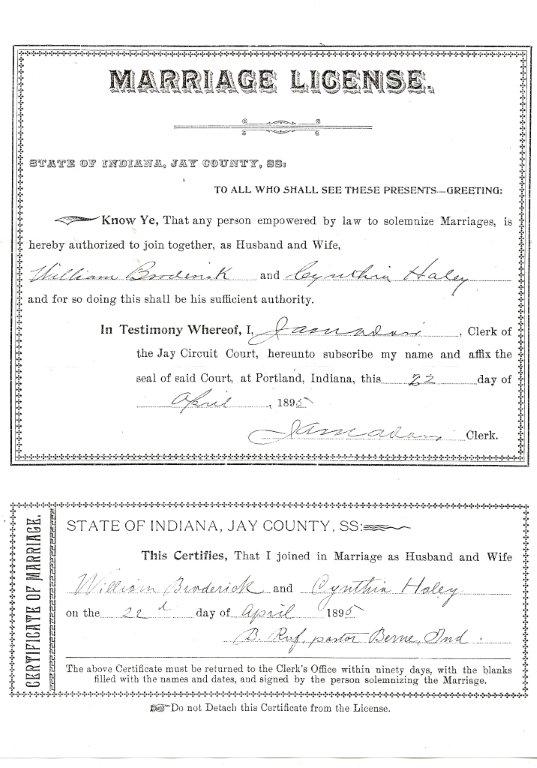 MARRIAGE LICENSE.
STATE OF INDIANA, JAY COUNTY, SS:
TO ALL WHO SHALL SEE THESE PRESENTS—GREETING:
Know Ye, That any person empowered by law to solemnize Marriages, is
hereby authorized to join together, as Husband and Wife,
William Broderick and Cynthia Haley
and for so doing this shall be his sufficient authority.
In Testimony Whereof, I, Clerk of
the Jay Circuit Court, hereunto subscribe my name and affix the
seal of said Court, at Portland, Indiana, this 22 day of
April, 1895
Clerk.
CERTIFICATE OF MARRIAGE.
STATE OF INDIANA, JAY COUNTY, SS:
This Certifies, That I joined in Marriage as Husband and Wife
William Broderick and Cynthia Haley
on the 22d day of April 1895
B. pastor Berne, Ind.
The above Certificate must be returned to the Clerk's Office within ninety days, with the blanks
filled with the names and dates, and signed by the person solemnizing the Marriage.
Do not Detach this Certificate from the License.